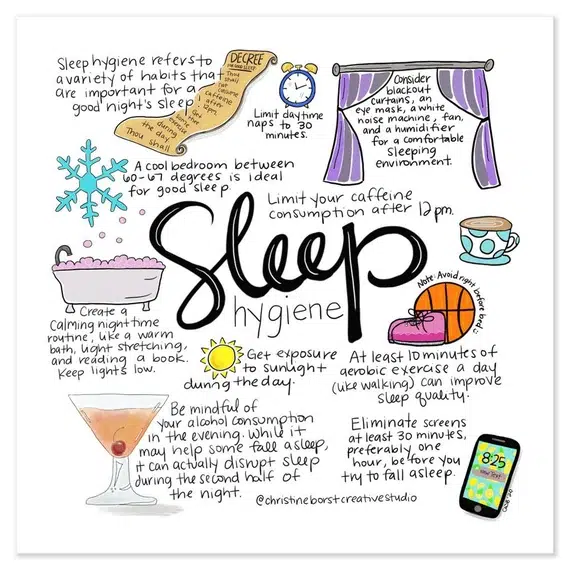 Sleep hygiene refers to
a variety of habits that
are important for a
good night's sleep.
DECREE
FOR GOOD SLEEP
Thou
shall
not
consume
caffeine
after
12pm.
during
the day.
Thou shall
Limit daytime
naps to 30
minutes.
Consider
blackout
curtains, an
eye mask, a white
noise machine, fan,
and a humidifier
for a comfortable
sleeping
environment.
A cool bedroom between
60-67 degrees is ideal
for good sleep.
Limit your caffeine
consumption after 12pm.
Sleep
hygiene
Note: Avoid right before bed :)
Create a
calming nighttime
routine, like a warm
bath, light stretching,
and reading a book.
Keep lights low.
Get exposure
to sunlight
during the day.
At least 10 minutes of
aerobic exercise a day
(like walking) can improve
sleep quality.
Be mindful of
your alcohol consumption
in the evening. While it
may help some fall asleep,
it can actually disrupt sleep
during the second half of
the night.
Eliminate screens
at least 30 minutes,
preferably one
hour, before you
try to fall asleep.
8:25
@christineborstcreativestudio